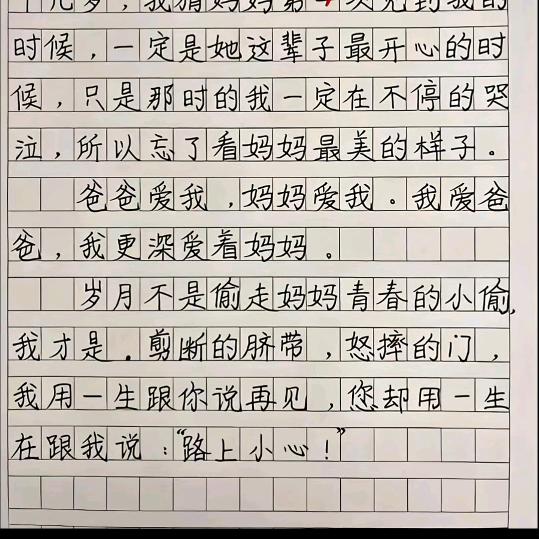 十几岁，我猜妈妈第一次见到我的
时候，一定是她这辈子最开心的时
候，只是那时的我一定在不停的哭
泣，所以忘了看妈妈最美的样子。
爸爸爱我，妈妈爱我。我爱爸
爸，我更深爱着妈妈。
岁月不是偷走妈妈青春的小偷，
我才是．剪断的脐带，怒摔的门，
我用一生跟你说再见，您却用一生
在跟我说：“路上小心！”